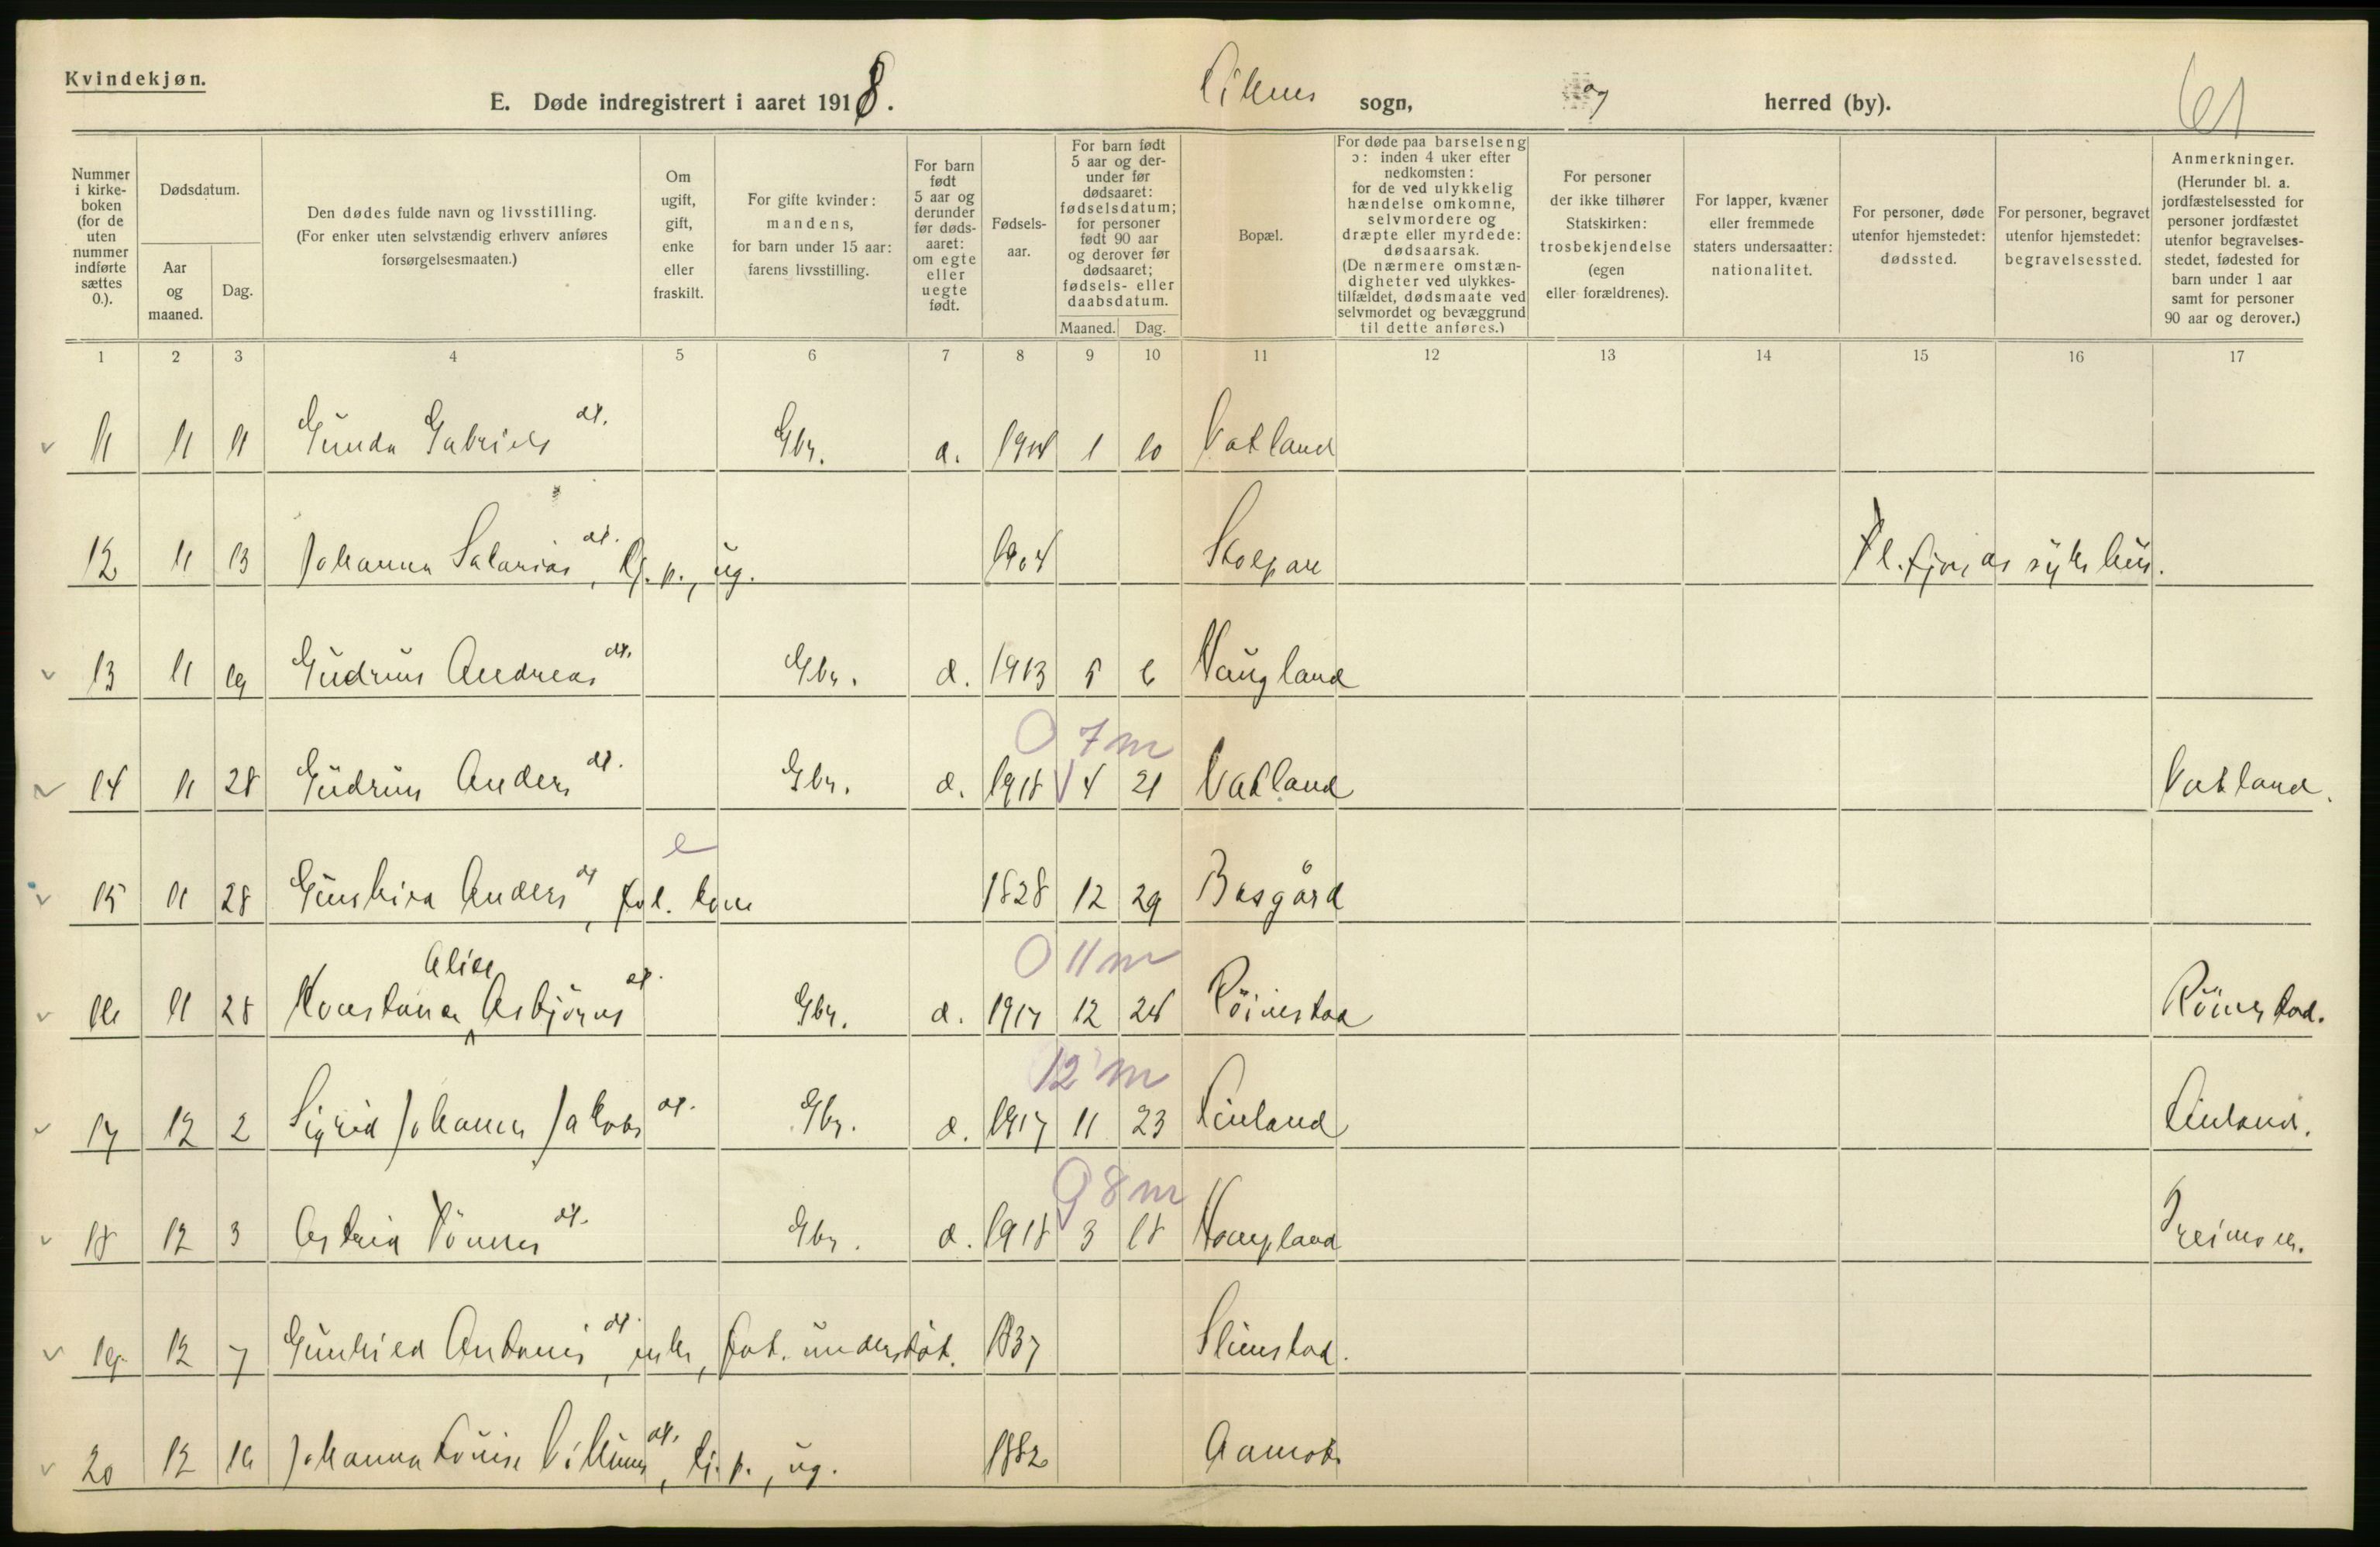 Kvindekjøn.
E. Døde indregistrert i aaret 1918.
sogn, og herred (by).
61
Nummer i kirkeboken (for de uten nummer indførte sættes 0.).
Dødsdatum.
Aar og maaned.
Dag.
Den dødes fulde navn og livsstilling. (For enker uten selvstændig erhverv anføres forsørgelsesmaaten.)
Om ugift, gift, enke eller fraskilt.
For gifte kvinder: mandens, for barn under 15 aar: farens livsstilling.
For barn født 5 aar og derunder før dødsaaret: om egte eller uegte født.
Fødselsaar.
For barn født 5 aar og derunder før dødsaaret: fødselsdatum; for personer født 90 aar og derover før dødsaaret; fødsels- eller daabsdatum.
Maaned.
Dag.
Bopæl.
For døde paa barselseng ɔ: inden 4 uker efter nedkomsten: for de ved ulykkelig hændelse omkomne, selvmordere og dræpte eller myrdede: dødsaarsak. (De nærmere omstændigheter ved ulykkestilfældet, dødsmaate ved selvmordet og bevæggrund til dette anføres.)
For personer der ikke tilhører Statskirken: trosbekjendelse (egen eller forældrenes).
For lapper, kvæner eller fremmede staters undersaatter: nationalitet.
For personer, døde utenfor hjemstedet: dødssted.
For personer, begravet utenfor hjemstedet: begravelsessted.
Anmerkninger. (Herunder bl. a. jordfæstelsessted for personer jordfæstet utenfor begravelsesstedet, fødested for barn under 1 aar samt for personer 90 aar og derover.)
1 2 3 4 5 6 7 8 9 10 11 12 13 14 15 16 17
11 11 11 Gunda Gabriels dt. Gbr. 1 10 Vatland
12 11 13 Johanna dt., tj. p., ug. 1904
13 11 19 Gudrun Andreas dt. Gbr. 1913 5 6 Haugland
0 7m
14 11 28 Gudrun Anders dt. Gbr. 1918 4 21 Vatland Vatland.
e
15 11 28 Anders dt, 1828 12 29 Bosgård
0 11m
16 11 28 Konstance Alise Asbjørns dt. Gbr. 1917 12 24 Röinestad Röinestad.
12 m
17 12 2 Sigrid Johanna Jakobs dt. Gbr. 1917 11 23
8m
18 12 3 Astrid Tönnes dt. Gbr. 1918 3 18
19 12 7 dt., enke, fat. understöt. 1837
20 12 16 Johanna Louise dt., tj. p., ug. 1882